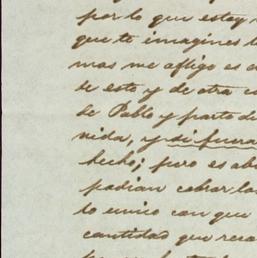 por lo que estoy
que te imagines l
mas me aflige es
de esto y de otra co
de Pablo y parto de
nida, y si fuera
hecho; pero es ab
podian cobrar la
lo unico con que
cantidad que reca